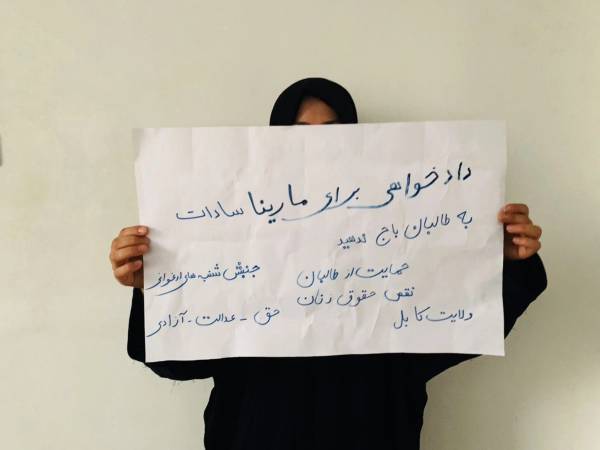 دادخواهی برای مارینا سادات
به طالبان باج ندهید
حمایت از طالبان
نقض حقوق زنان
ولایت کابل
جنبش شنبه‌های ارغوانی
حق - عدالت - آزادی